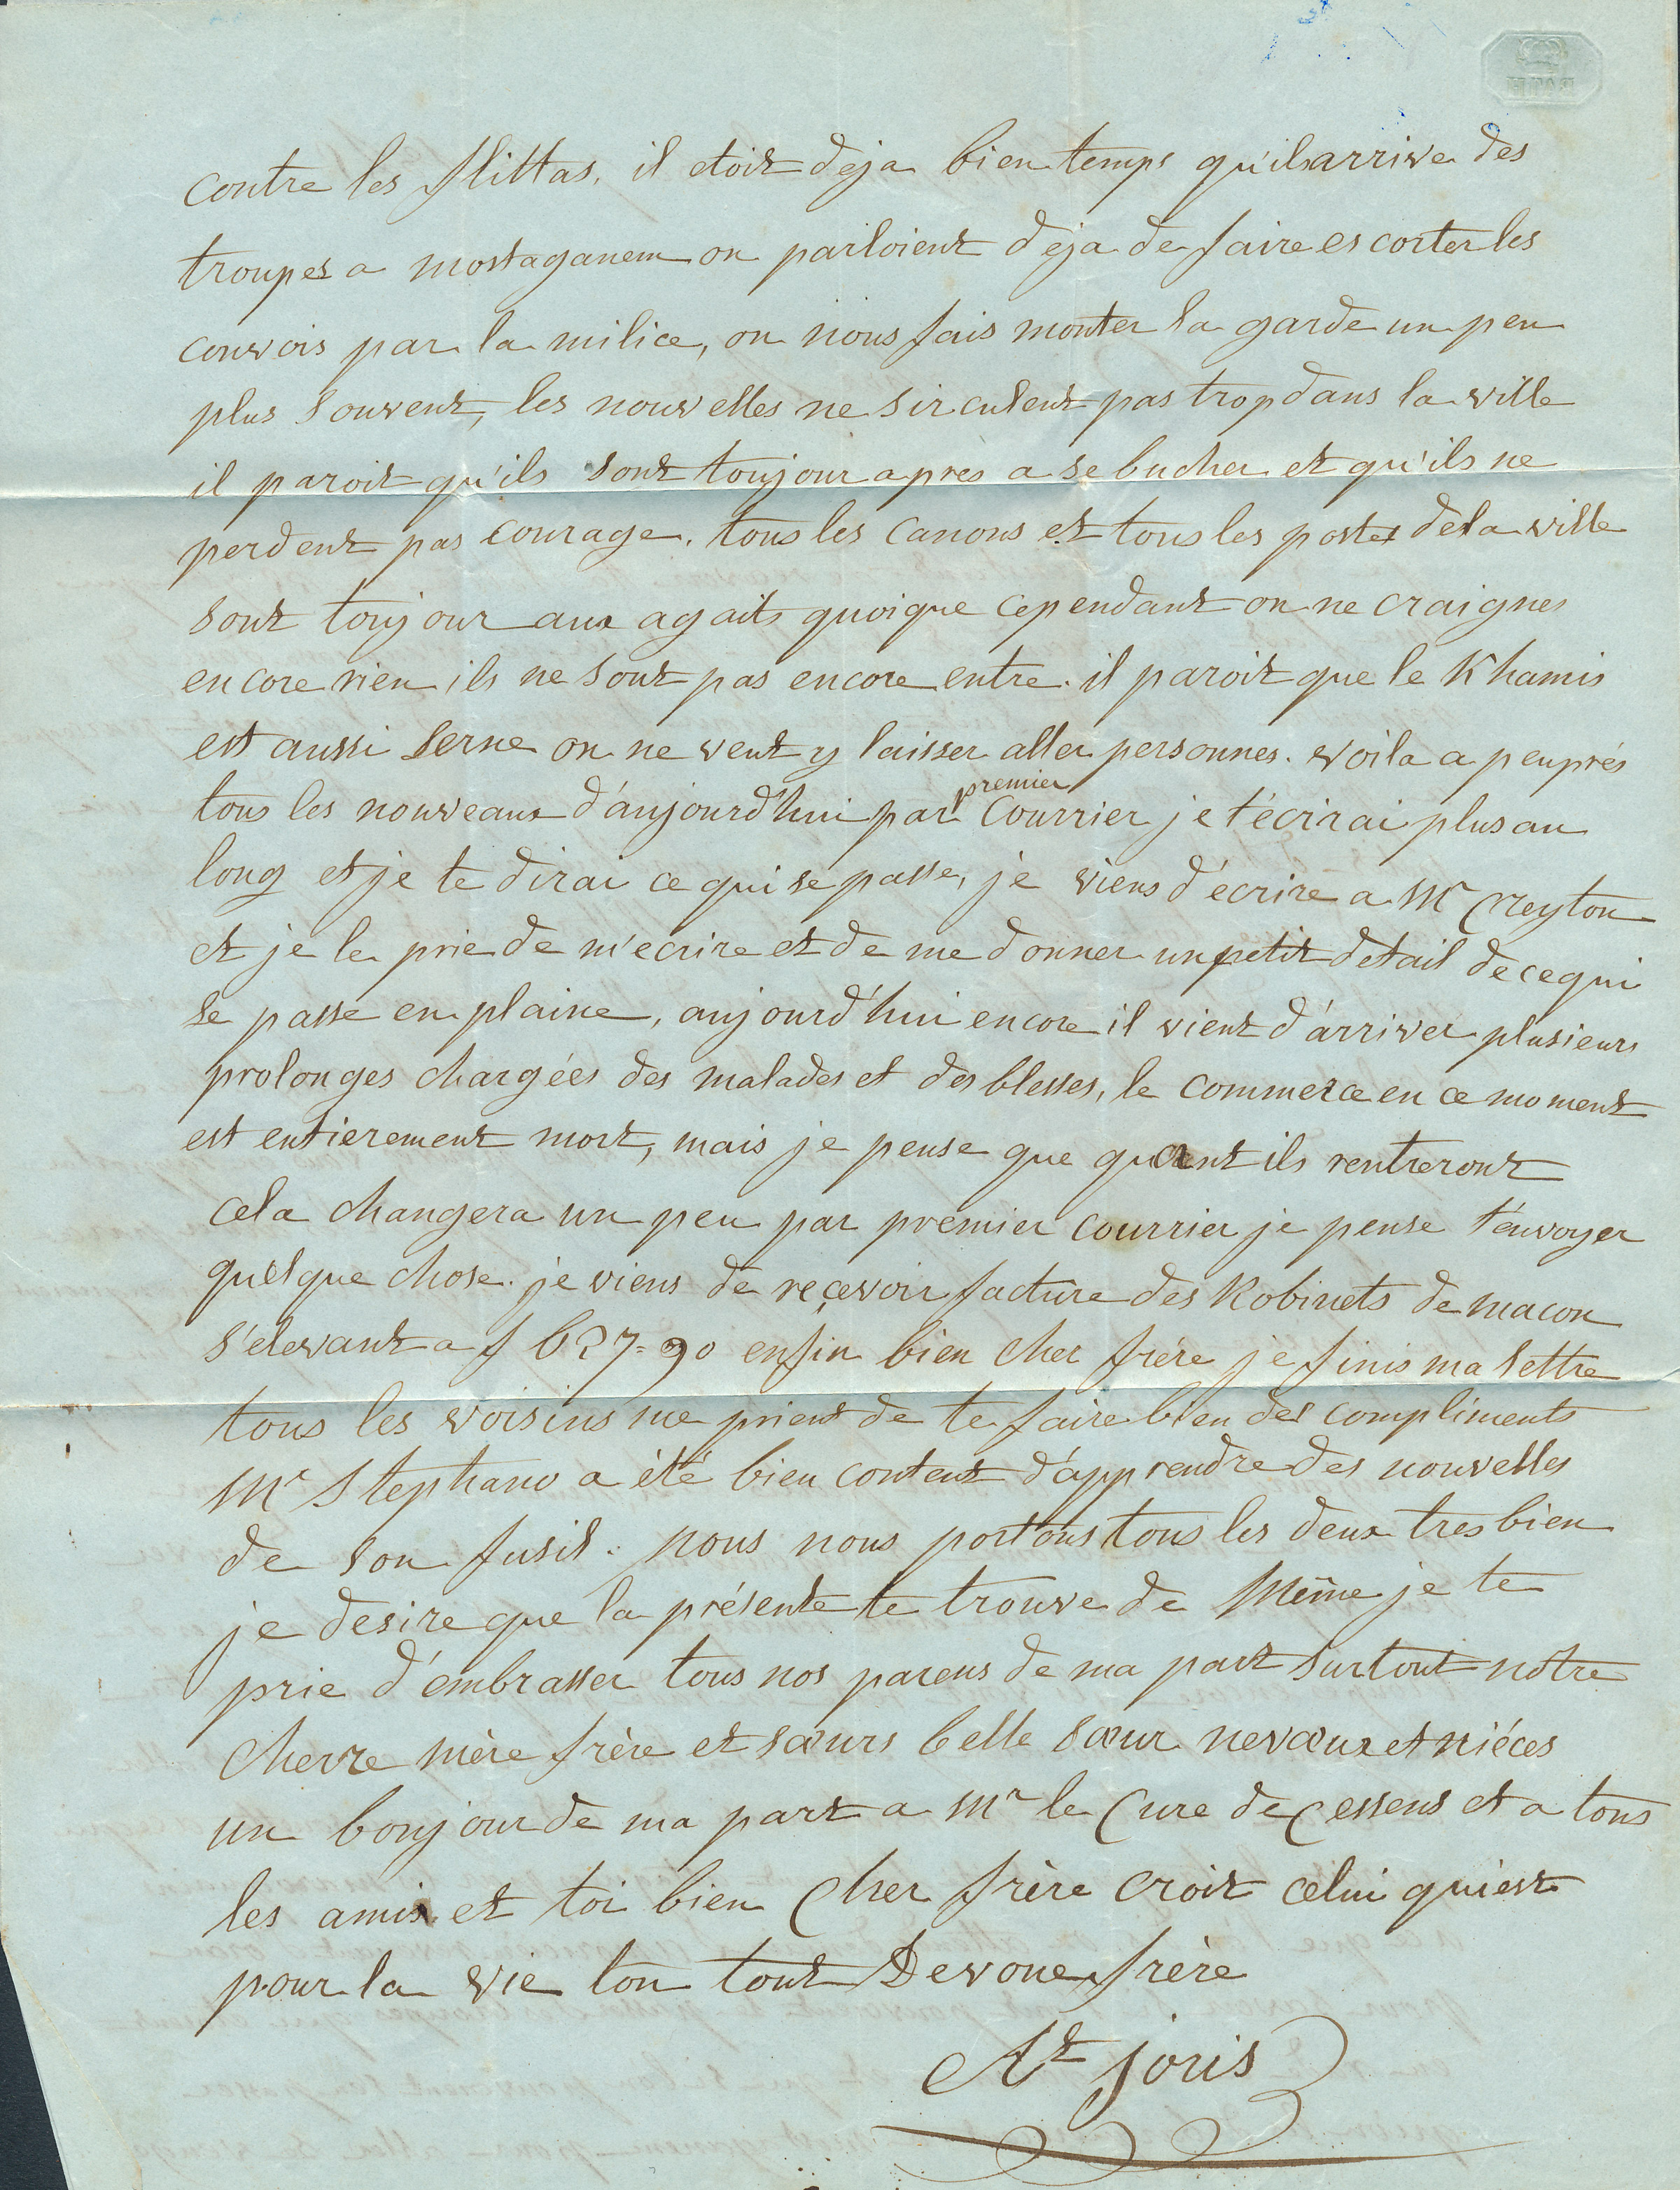 contre les flittas, il etoit deja bien temps qu'ils arrive des
troupes a mostaganem on parloient deja de faire escorter les
convois par la milice, on nous fais monter la garde un peu
plus souvent, les nouvelles ne sirculent pas trop dans la ville
il paroit qu'ils sont toujour apres a se bucher et qu'ils ne
perdent pas courage. tous les canons et tous les postes dela ville
sont toujour aux agaits quoique cependant on ne craignes
encore rien ils ne sont pas encore entre. il paroit que le Khamis
est aussi serne on ne veut y laisser aller personnes. voila a peuprés
tous les nouveaux d'aujourd'hui par premier Courrier je t'écrirai plus au
long et je te dirai ce qui se passe, je viens d'écrire a Mr Creyton
et je le prie de m'ecrire et de me donner un petit detail de ce qui
se passe en plaine, aujourd'hui encore il vient d'arriver plusieurs
prolonges chargées des malades et des blesses, le commerce en ce moment
est entierement mort, mais je pense que quant ils rentreront
cela changera un peu par premier courrier je pense t'envoyer
quelque chose. je viens de reçevoir facture des Robinets de macon
s'elevant a f 627=90 enfin bien cher frére je finis ma lettre
tous les voisins me prient de te faire bien des compliments
Mr Stephano a été bien content d'apprendre des nouvelles
de son fusil. nous nous portons tous les deux tres bien
je desire que la présente te trouve de Même je te
prie d'embrasser tous nos parens de ma part surtout nôtre
cherre mère frère et sœurs belle sœur nevœux et niéces
un bonjour de ma part a Mr le Cure de Cessens et a tous
les amis et toi bien Cher frère croit celui qui est
pour la vie ton tout Devoue frère
At joris
BATH